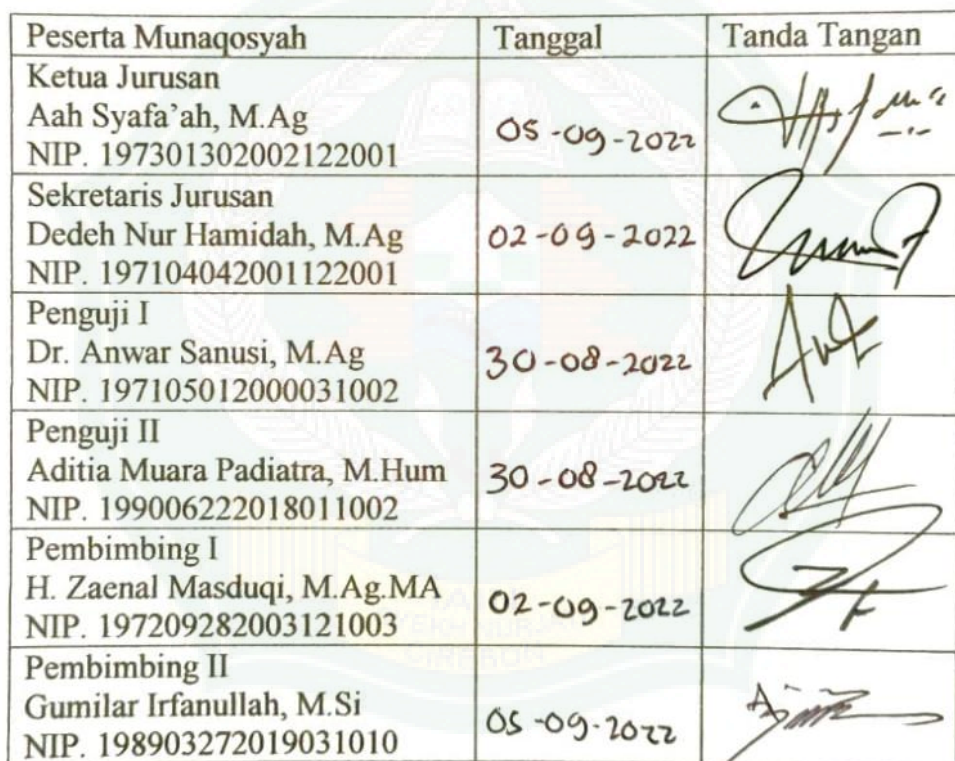 Peserta Munaqosyah Tanggal Tanda Tangan
Ketua Jurusan
Aah Syafa'ah, M.Ag
NIP. 197301302002122001
05-09-2022
Sekretaris Jurusan
Dedeh Nur Hamidah, M.Ag
NIP. 197104042001122001
02-09-2022
Penguji I
Dr. Anwar Sanusi, M.Ag
NIP. 197105012000031002
30-08-2022
Penguji II
Aditia Muara Padiatra, M.Hum
NIP. 199006222018011002
30-08-2022
Pembimbing I
H. Zaenal Masduqi, M.Ag.MA
NIP. 197209282003121003
02-09-2022
Pembimbing II
Gumilar Irfanullah, M.Si
NIP. 198903272019031010
05-09-2022